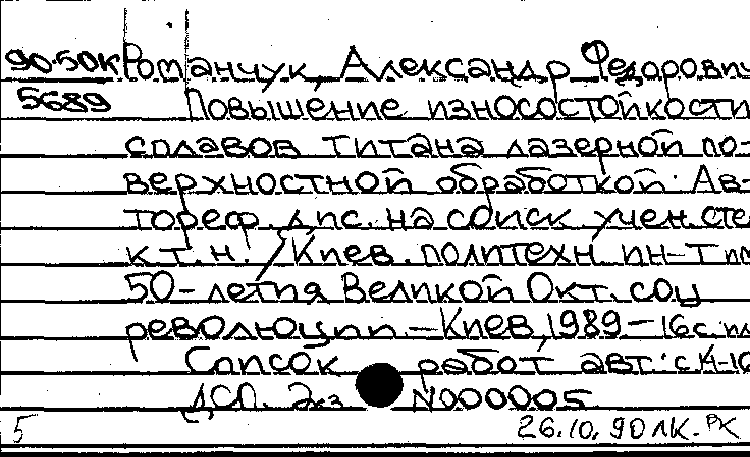 90-50К Романчук, Александр Федорович
5689 Повышение износостойкости
сплавов титана лазерной по-
верхностной обработкой: Ав-
тореф. дис. на соиск учен. сте
к.т.н. / Киев. политехн. ин-т им
50-летия Великой Окт. соц
революции. – Киев, 1989 – 16с. ил
Список работ авт.: с.14-16
ДСП. Экз N000005
5 26.10.90 ЛК. РК